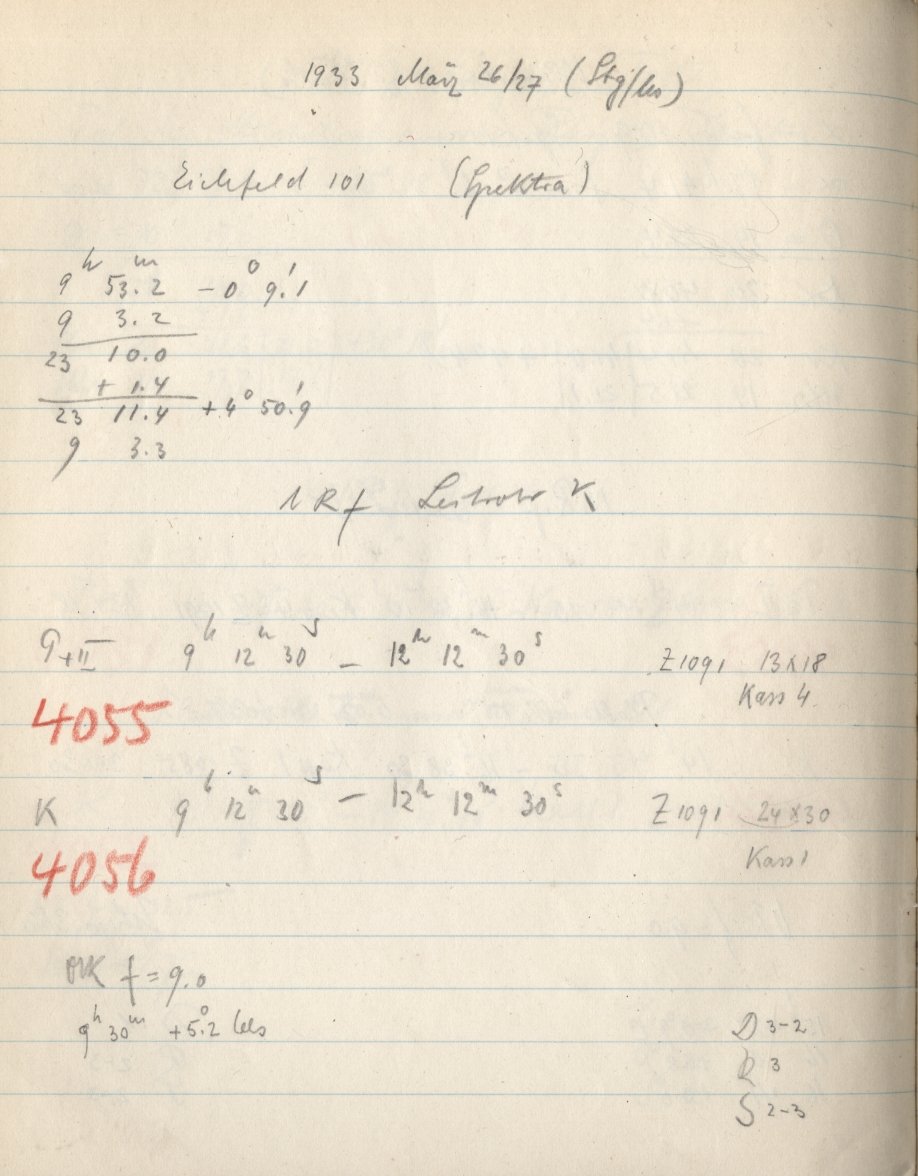 1933 März 26/27 (Stg/ks)
Eichfeld 101 (Spektra)
9h 53m.2 -0° 9.'1
9 3.2
23 10.0
+ 1.4
23 11.4 +4° 50.'9
9 3.3
1 Rf Leitrohr K
9h 12m 30s – 12h 12m 30s Z 1091 13x18
Kass 4
4055
K 9h 12m 30s – 12h 12m 30s Z 1091 24x30
Kass 1
4056
f = 9.0
9h 30m +5.°2
D 3-2
R 3
S 2-3